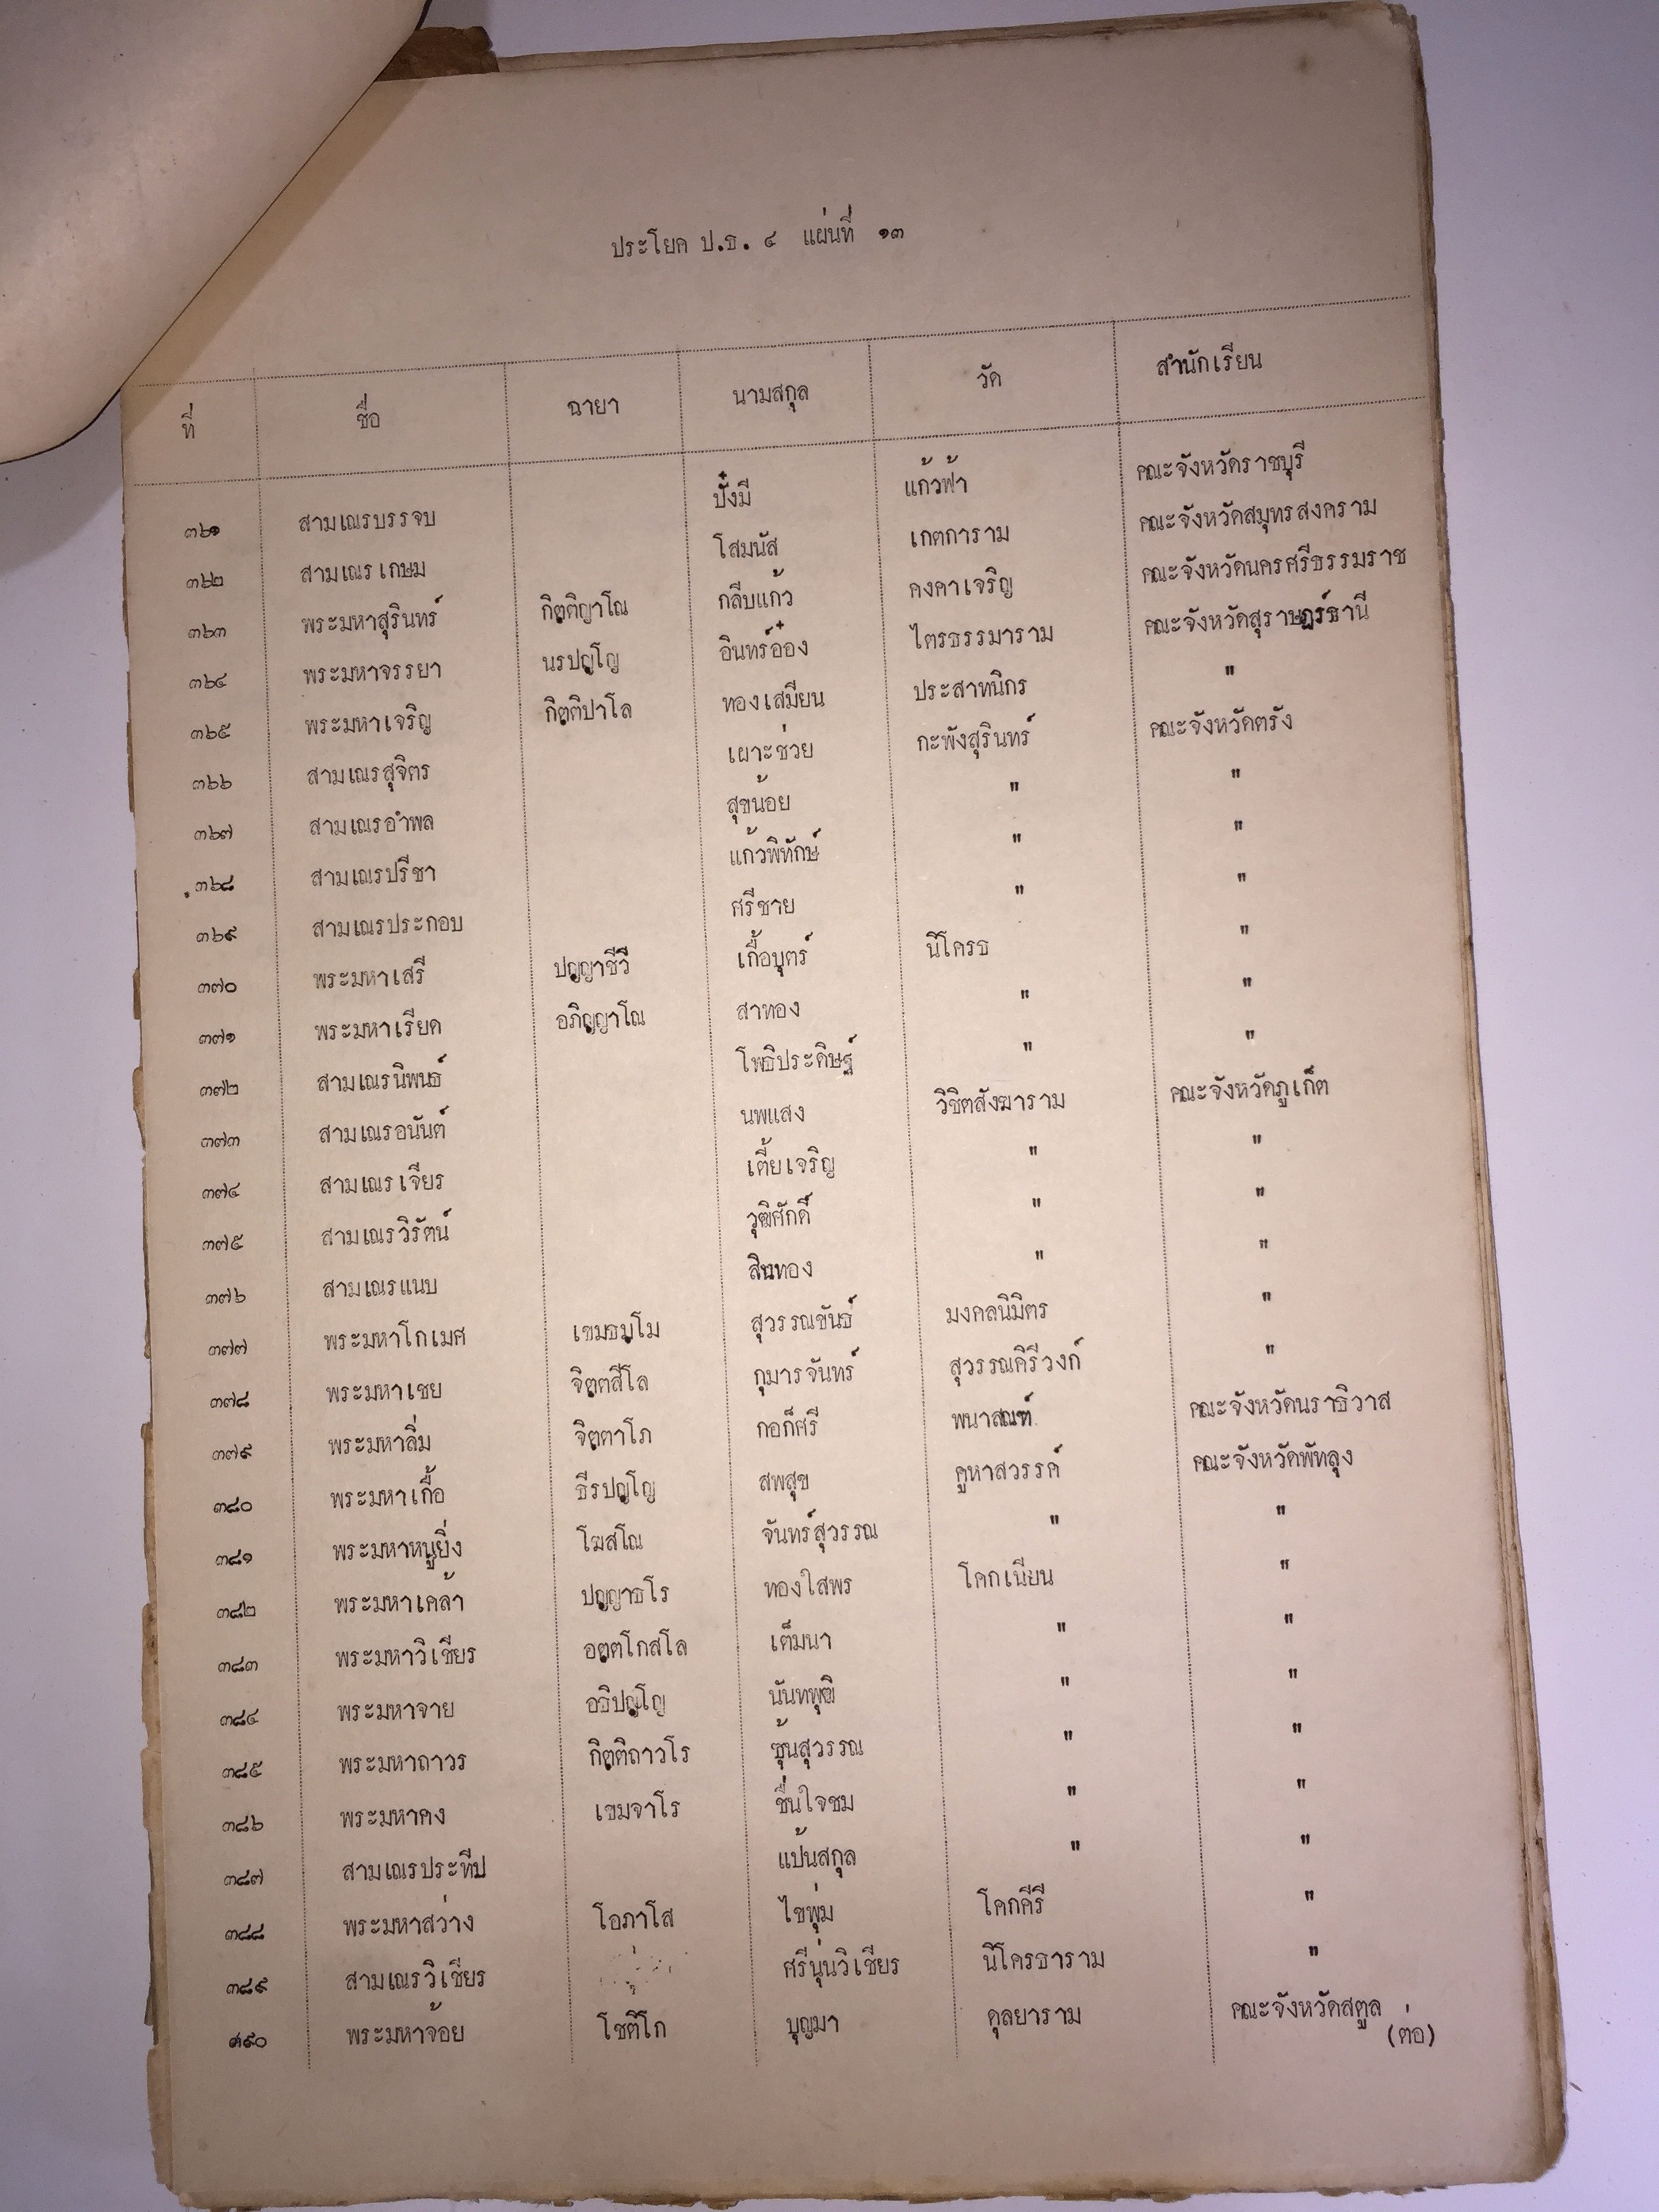 ประโยค ป.ธ. ๔ แผ่นที่ ๑๓
ที่ ชื่อ ฉายา นามสกุล วัด สำนักเรียน
๓๖๑ สามเณรบรรจบ ปั้งมี แก้วฟ้า คณะจังหวัดราชบุรี
๓๖๒ สามเณรเกษม โสมนัส เกตการาม คณะจังหวัดสมุทรสงคราม
๓๖๓ พระมหาสุรินทร์ กิตฺติญาโณ กลีบแก้ว คงคาเจริญ คณะจังหวัดนครศรีธรรมราช
๓๖๔ พระมหาจรรยา นรปญฺโญ อินทร์อ๋อง ไตรธรรมาราม คณะจังหวัดสุราษฎร์ธานี
๓๖๕ พระมหาเจริญ กิตฺติปาโล ทองเสมียน ประสาทนิกร "
๓๖๖ สามเณรสุจิตร เผาะช่วย กะพังสุรินทร์ คณะจังหวัดตรัง
๓๖๗ สามเณรอำพล สุขน้อย " "
๓๖๘ สามเณรปรีชา แก้วพิทักษ์ " "
๓๖๙ สามเณรประกอบ ศรีชาย " "
๓๗๐ พระมหาเสรี ปญฺญาชีวี เกื้อบุตร์ นิโครธ "
๓๗๑ พระมหาเรียด อภิญฺญาโณ สาทอง " "
๓๗๒ สามเณรนิพนธ์ โพธิประดิษฐ์ " "
๓๗๓ สามเณรอนันต์ นพแสง วิชิตสังฆาราม คณะจังหวัดภูเก็ต
๓๗๔ สามเณรเจียร เตี้ยเจริญ " "
๓๗๕ สามเณรวิรัตน์ วุฒิศักดิ์ " "
๓๗๖ สามเณรแนบ สินทอง " "
๓๗๗ พระมหาโกเมศ เขมธมฺโม สุวรรณขันธ์ มงคลนิมิตร "
๓๗๘ พระมหาเชย จิตฺตสีโล กุมารจันทร์ สุวรรณคิรีวงก์ "
๓๗๙ พระมหาลิ่ม จิตฺตาโภ กอก็ศรี พนาสณฑ์ คณะจังหวัดนราธิวาส
๓๘๐ พระมหาเกื้อ ธีรปญฺโญ สพสุข คูหาสวรรค์ คณะจังหวัดพัทลุง
๓๘๑ พระมหาหนูยิ่ง โฆสโณ จันทร์สุวรรณ " "
๓๘๒ พระมหาเคล้า ปญฺญาธโร ทองใสพร โคกเนียน "
๓๘๓ พระมหาวิเชียร อตฺตโกสโล เต็มนา " "
๓๘๔ พระมหาจาย อธิปญฺโญ นันทพุฒิ " "
๓๘๕ พระมหาถาวร กิตฺติถาวโร ซุ้นสุวรรณ " "
๓๘๖ พระมหาคง เขมจาโร ชื่นใจชม " "
๓๘๗ สามเณรประทีป แป้นสกุล " "
๓๘๘ พระมหาสว่าง โอภาโส ไขพุ่ม โคกคีรี "
๓๘๙ สามเณรวิเชียร ศรีนุ่นวิเชียร นิโครธาราม "
๓๙๐ พระมหาจ้อย โชติโก บุญมา ดุลยาราม คณะจังหวัดสตูล
(ต่อ)